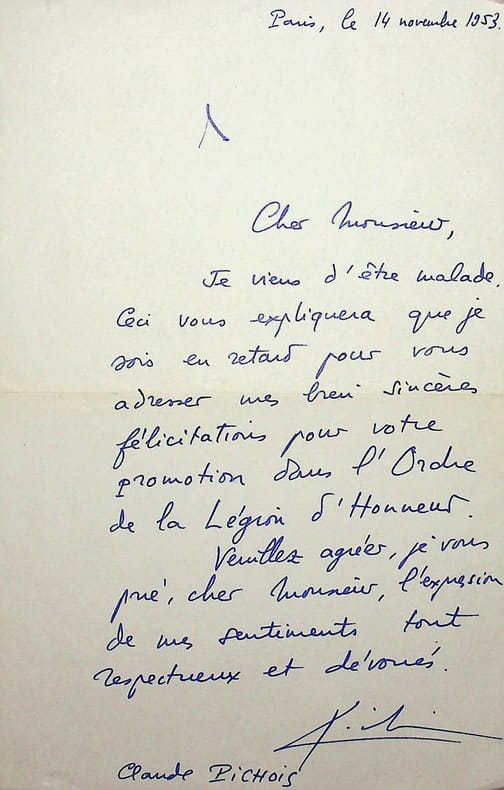 Paris, le 14 novembre 1953.
Cher Monsieur,
Je viens d'être malade.
Ceci vous expliquera que je
sois en retard pour vous
adresser mes bien sincères
félicitations pour votre
promotion dans l'Ordre
de la Légion d'Honneur.
Veuillez agréer, je vous
prie, cher Monsieur, l'expression
de mes sentiments tout
respectueux et dévoués.
Claude PICHOIS